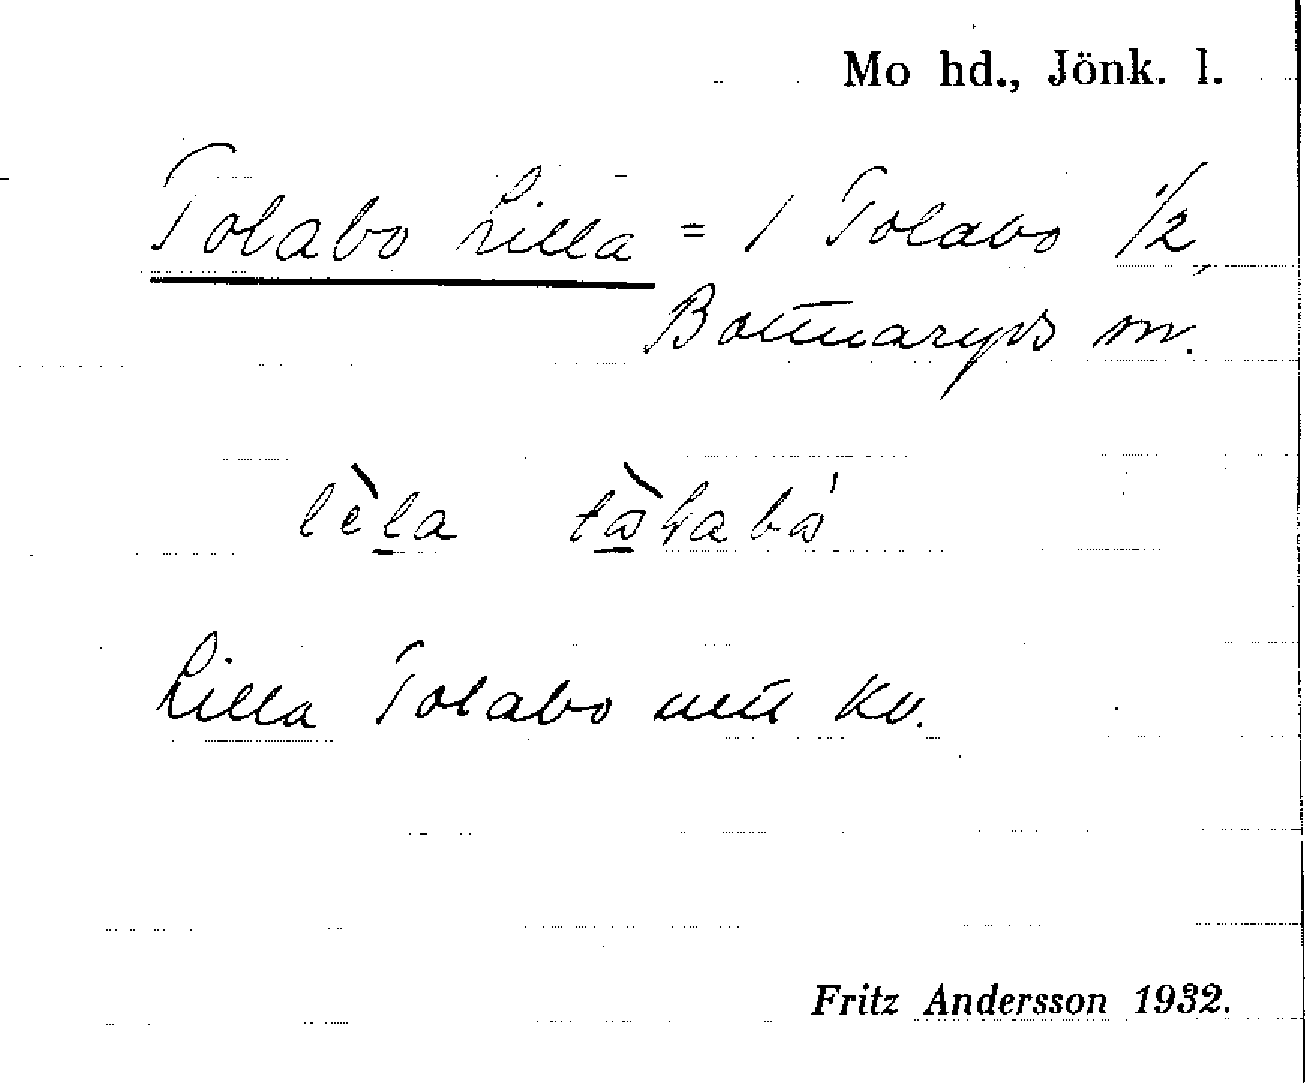 Mo hd., Jönk. l.
Tolabo Lilla = 1 Tolabo 1/2,
Bottnaryps sn.
lèla tålabå
Lilla Tolabo utt. kv.
Fritz Andersson 1932.